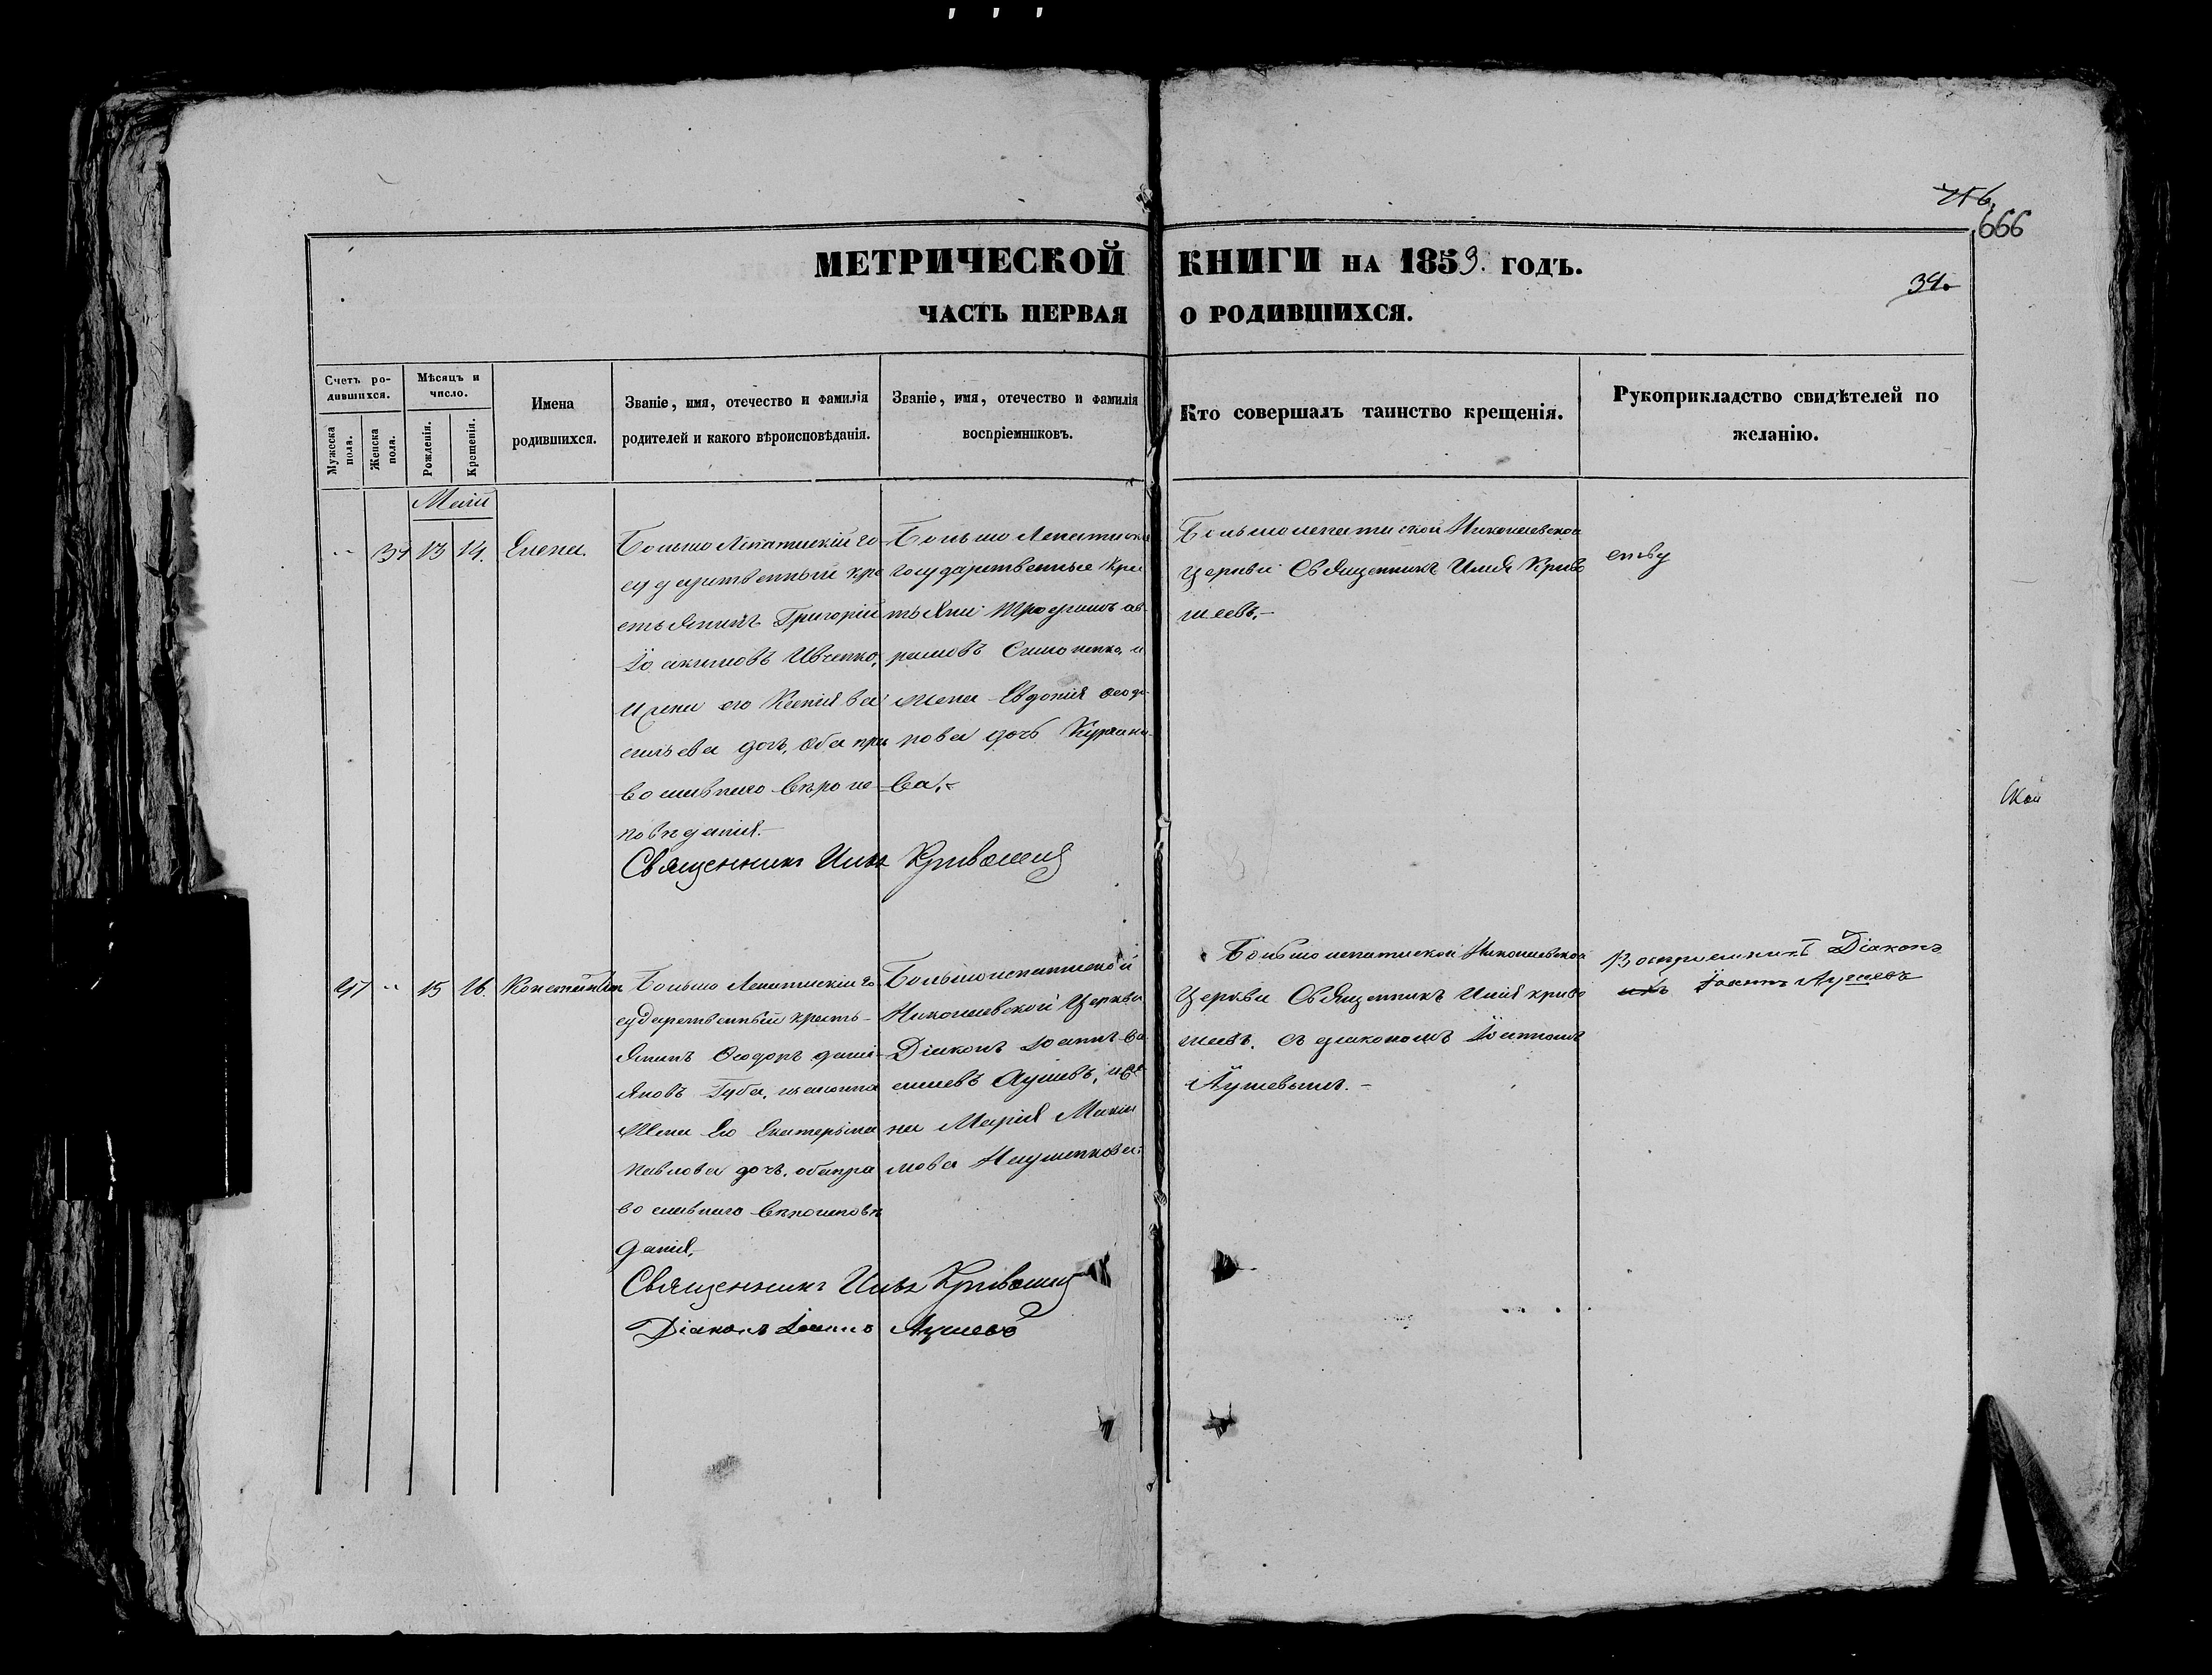 716.
666
МЕТРИЧЕСКОЙ КНИГИ НА 1859. ГОДЪ.
34.
ЧАСТЬ ПЕРВАЯ О РОДИВШИХСЯ.
Счетъ ро-
дившихся.
Мужеска
пола.
Женска
пола.
Мѣсяцъ и
число.
Рожденія.
Крещенія.
Имена
родившихся.
Званіе, имя, отечество и фамилія
родителей и какого вѣроисповѣданія.
Званіе, имя, отечество и фамилія
воспріемниковъ.
Кто совершалъ таинство крещенія.
Рукоприкладство свидѣтелей по
желанію.
Маій
34 13 14. Елена.
Большо Лепатискій го
сударственный кре
стьянинъ Григорій
Іоакимовъ Ивченко,
и жена его Ксенія Ва
сильева дочь, оба пра
вославнаго вѣроис
повѣданія.
Большо Лепатискіе
государственные кре
стьяни Трофимъ Ав
рамовъ Симоненко, и
жена Евдокія Ѳеодо
рова дочь
ва.
Большолепатиской Николаевской
церкви Священникъ Илія Криво
шеевъ.
Священникъ Илія Кривошеев
ской
47 15 16. Константин
Большо Лепатискій го
сударственный кресть-
янинъ Ѳеодоръ Даміяновъ Губа, и законная
жена Его Екатерина
Павлова дочь, оба пра
вославнаго вѣроисповѣ
данія.
Большолепатиской
Николаевской Церкви
Діаконъ Іоаннъ Ва
силиевъ Аушевъ, и же
на Марія Макси
мова
Большолепатиской Николаевской
Церкви Священникъ Илія Криво
шеевъ. съ діакономъ Іоанномъ
Аушевымъ.
Воспріемникъ Діаконъ
Іоаннъ Аушевъ
Священникъ Илія Кривошеев
Діаконъ Іоаннъ Аушевъ